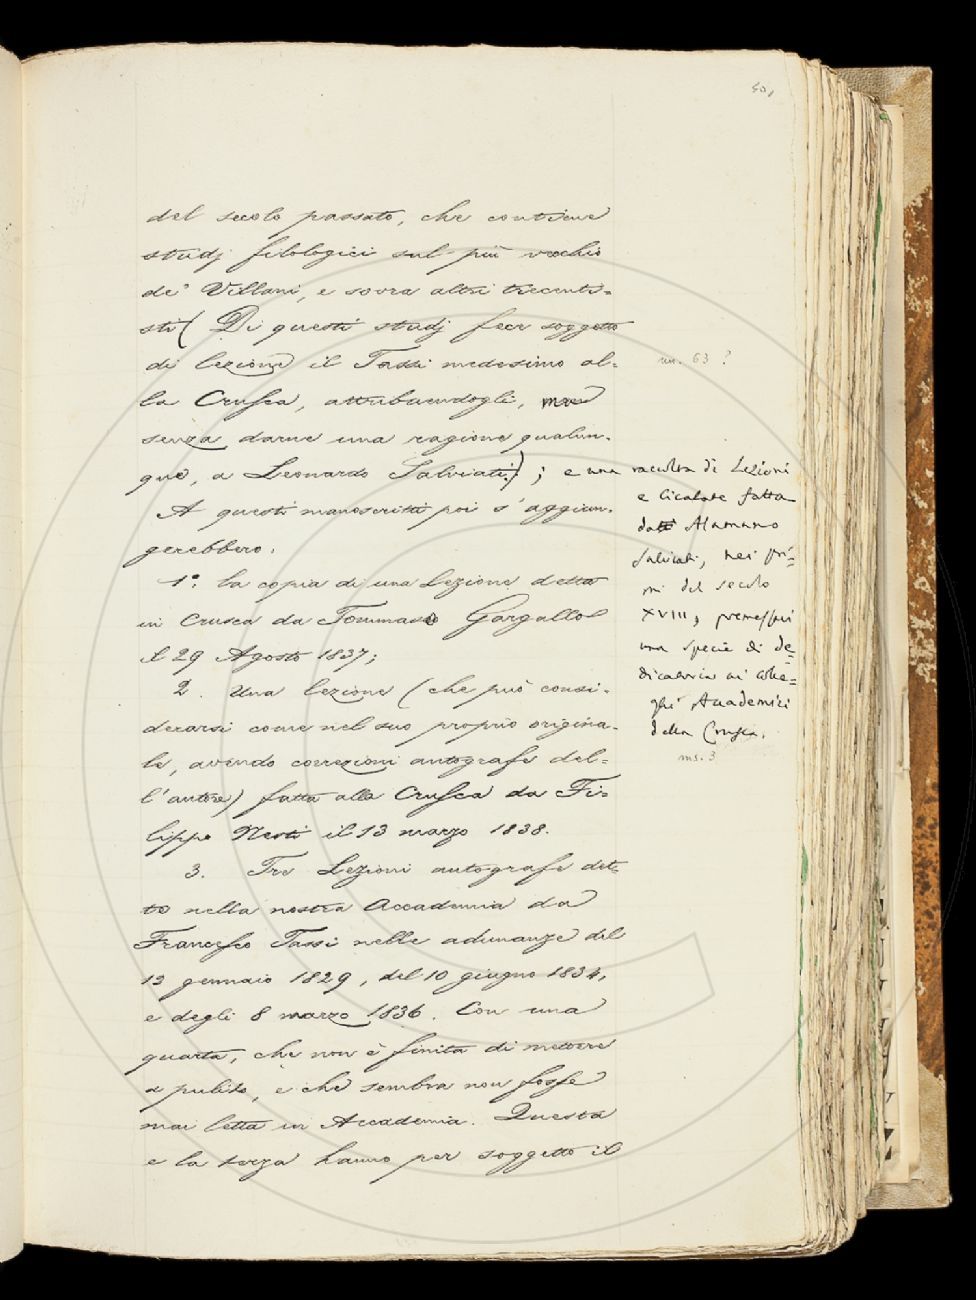 501
del secolo passato, che contiene
studj filologici sul più vecchio
de' Villani, e sovra altri trecenti-
sti (Di questi studj fece soggetto
di lezione il Tassi medesimo al-
la Crusca, attribuendogli, ma
senza darne una ragione qualun-
que, a Leonardo Salviati); e una
A questi manoscritti poi s'aggiun-
gerebbero.
1º. la copia di una Lezione detta
in Crusca da Tommaso Gargallo
il 29 Agosto 1837;
2. Una lezione (che può consi-
derarsi come nel suo proprio origina-
le, avendo correzioni autografe del-
l'autore) fatta alla Crusca da Fi-
lippo Nesti il 13 marzo 1838.
3. Tre Lezioni autografe det-
te nella nostra Accademia da
Francesco Tassi nelle adunanze del
13 gennaio 1829, del 10 giugno 1834,
e degli 8 marzo 1836. Con una
quarta, che non è finita di mettere
a pulito, e che sembra non fosse
mai letta in Accademia. Questa
e la terza hanno per soggetto il
un. 63 ?
raccolta di Lezioni
e Cicalate fatta
da Alamanno
Salviati, nei pri-
mi del secolo
XVIII, premessavi
una specie di de-
dicatoria ai colle-
ghi Accademici
della Crusca.
ms. 3